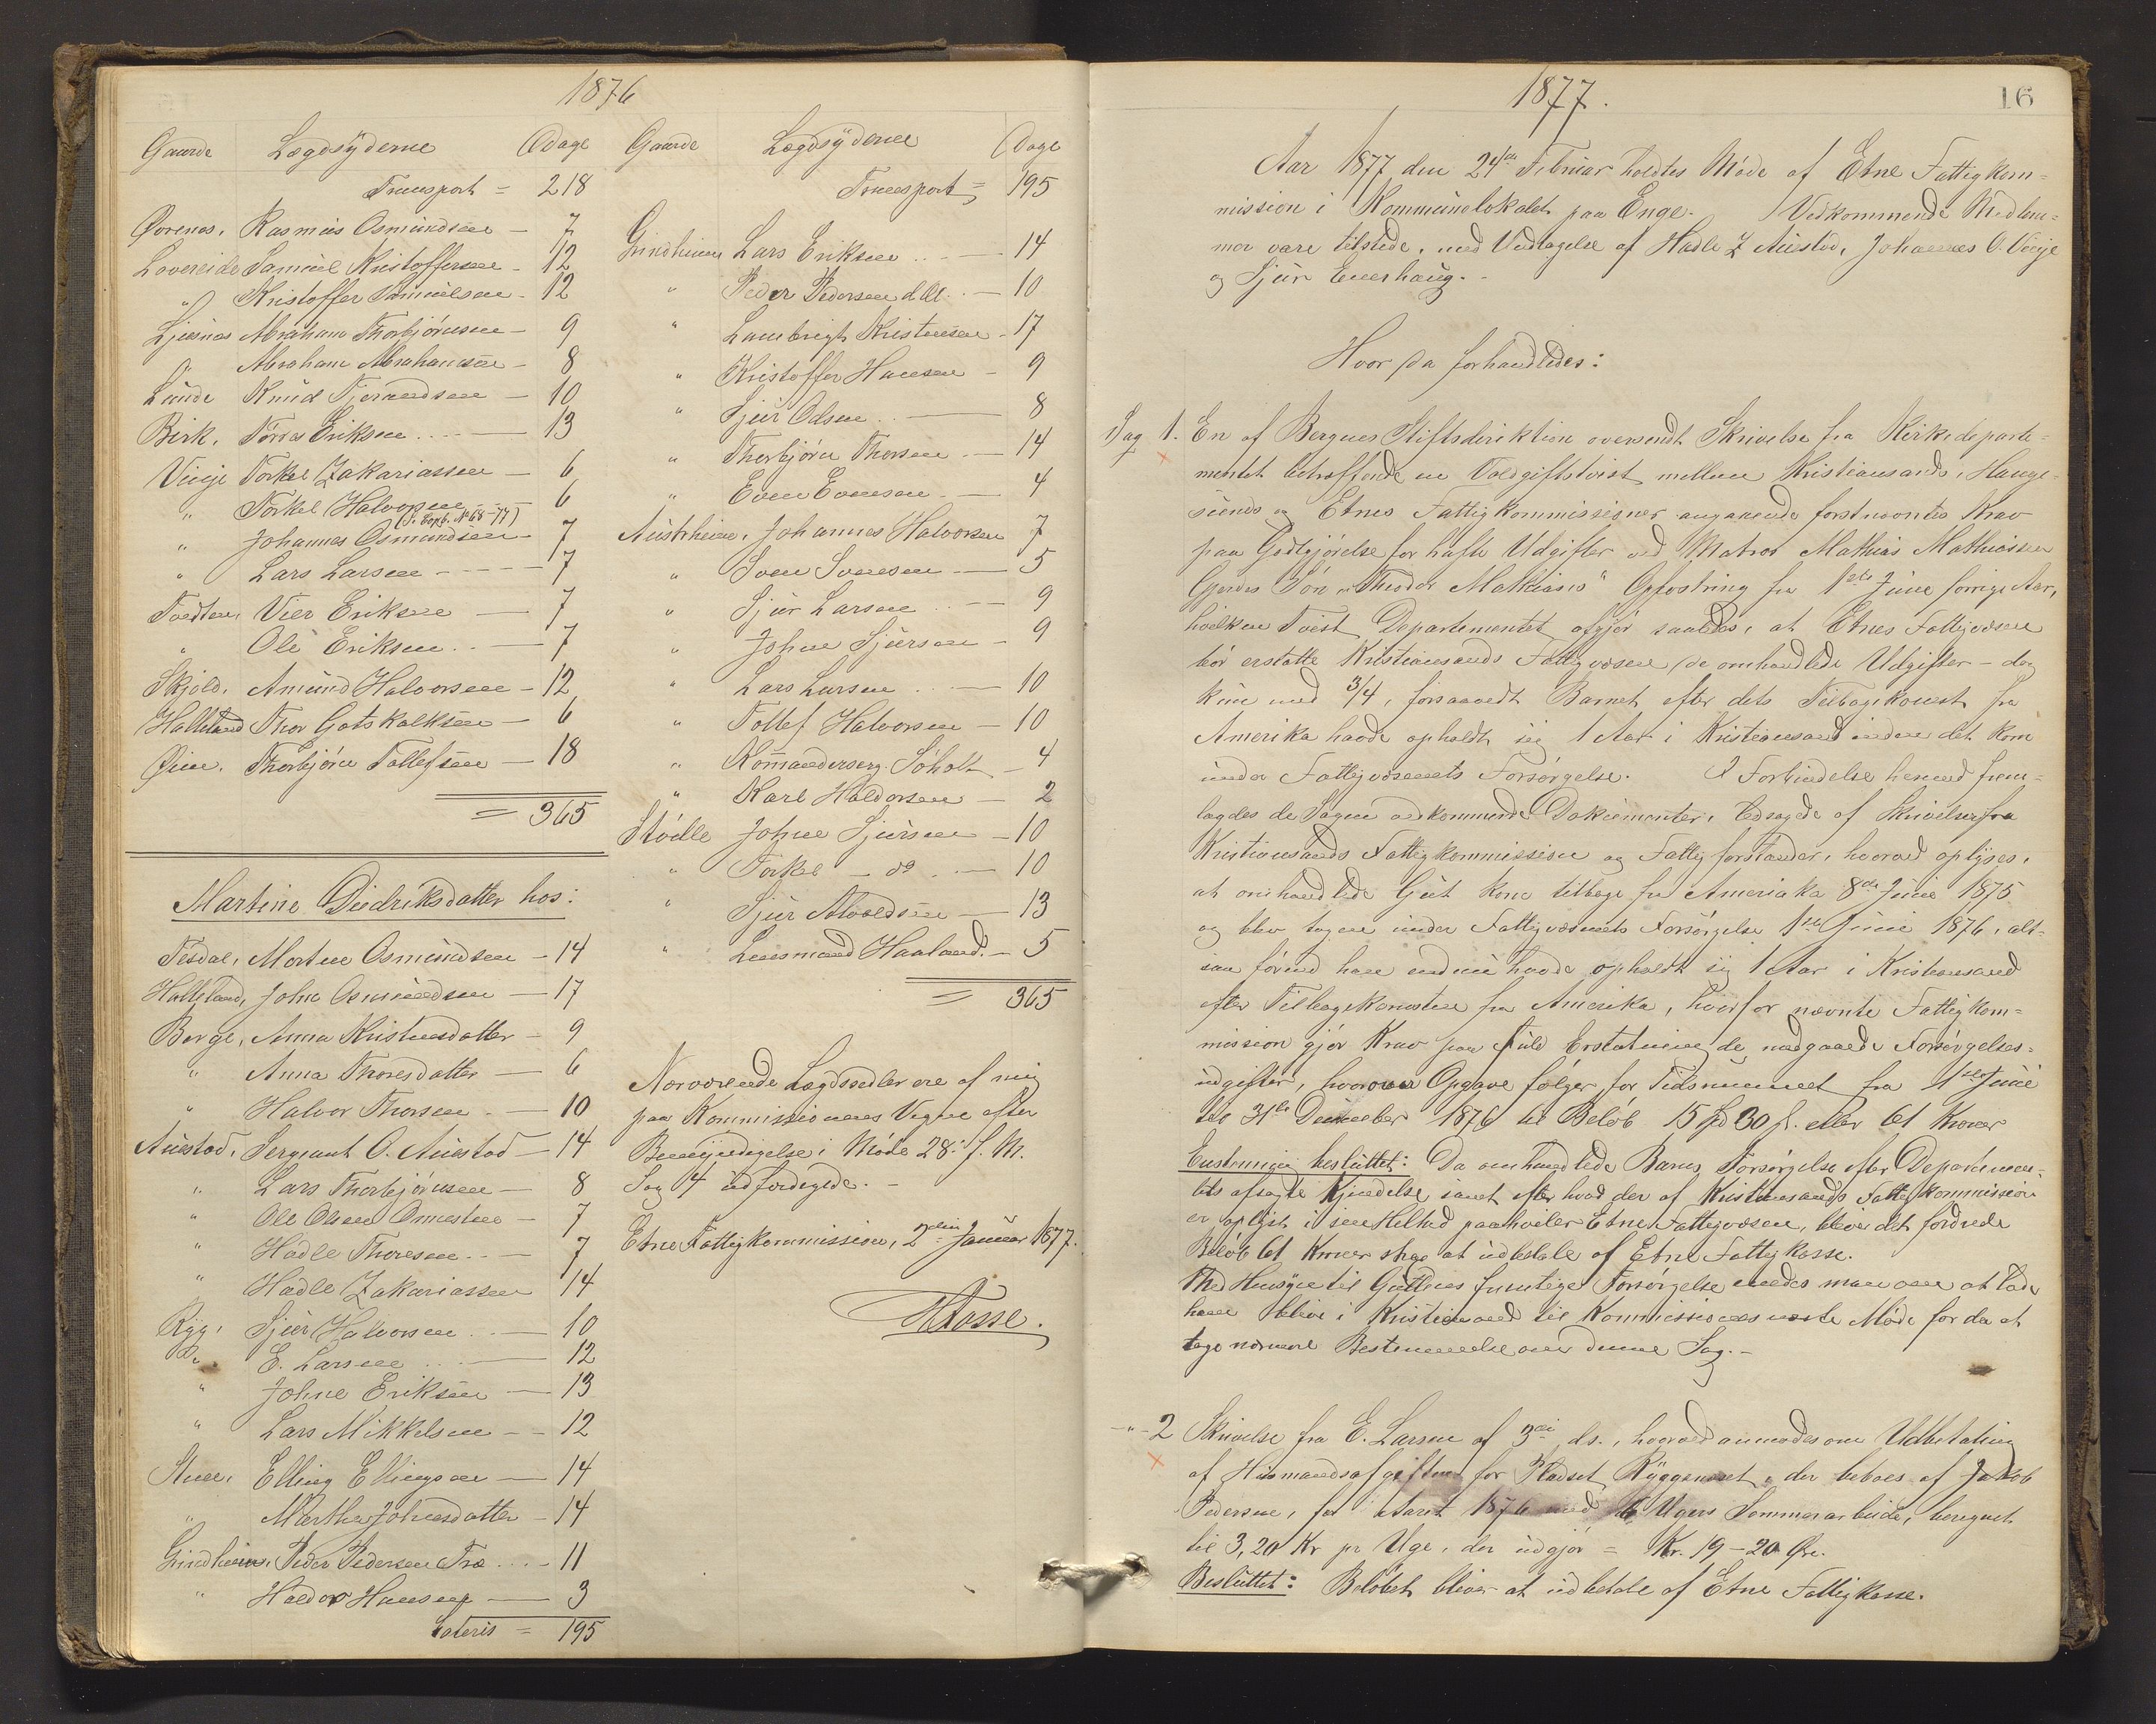 1876
Gaarde Lægdsyderne Dage
Transport = 218
Ørenes, Rasmus Osmundsen — 7
Lovereide Samuel Kristoffersen — 12
" Kristoffer Samuelsen — 12
Ljusnes Abraham Thorbjørnsen — 9
" Abraham Abrahamsen — 8
Lunde Knud Tjerandsen — 10
Birk, Tørres Eriksen — 13
Vinje Torkel Zakariassen — 6
" Torkel Halvorsen — 6
(S. Copb. No 68-77)
" Johannes Osmundsen — 7
" Lars Larsen — 7
Tvedten, Vier Eriksen — 7
" Ole Eriksen — 7
Skjold, Amund Halvorsen — 12
Halleland Thor Gotskalksen — 6
Øien, Thorbjørn Tollefsen — 18
= 365
Martine Diedriksdatter hos:
Tesdal, Morten Osmundsen — 14
Halleland, John Osmundsen — 17
Berge, Anna Kristensdatter — 9
" Anna Thoresdatter — 6
" Halvor Thorsen — 10
Austad, Sergeant O. Austad — 14
" Lars Thorbjørnsen — 8
" Ole Olsen Onnestne — 7
" Hadle Thoresen — 7
" Hadle Zakariassen 14
Ryg, Sjur Halvorsen — 10
" E. Larsen — 12
" Johne Eriksen — 13
" Lars Mikkelsen — 12
Stuee, Elling Ellingsen — 14
" Marthe Johnesdatter — 14
Grindheim, Peder Pedersen Træ — 11
" Haldor Hansen — 3
Lateris = 195
Gaarde Lægdsyderne Dage
Transport = 195
Grindheim Lars Eriksen — 14
" Peder Pedersen d. Æl. — 10
" Lambrigt Kristensen — 17
" Kristoffer Hansen — 9
" Sjur Olsen — 8
" Thorbjørn Thorsen — 14
" Even Evensen — 4
Austrheim, Johannes Halvorsen 7
" Sven Svensen — 5
" Sjur Larsen — 9
" Johne Sjursen — 9
" Lars Larsen — 10
" Tollef Halvorsen — 10
" Komanderserg. Søholt — 4
" Karl Haldorsen — 2
Stødle Johne Sjursen — 10
" Torkel — do — 10
" Sjur Alvaldsen — 13
" Lensmand Haaland — 5
= 365
Nærværende Lægdssedler ere af mig
paa Kommissionens Vegne efter
Bemyndigelse i Møde 28: f. M.
Sag 4 udfærdigede. —
Etne Fattigkommission, 2den Januar 1877.
H Tosse.
1877.
16
Aar 1877 den 24de Februar holdtes Møde af Etne Fattigkom=
mission i Kommunelokalet paa Enge. Vedkommende Medlem=
mer vare tilstede, med Undtagelse af Hadle Z Austad, Johannes O. Vinje
og Sjur Eneshaug. -
Hvor da forhandledes:
Sag 1. En af Bergens Stiftsdirektion oversendt Skrivelse fra Kirkedeparte=
mentet betræffende en Voldgiftstvist mellem Kristiansands, Hauge=
sunds og Etnes Fattigkommissioner angaaende førstnævntes Krav
paa Godtgjørelse for hafte Udgifter ved Matros Mathias Mathiassen
Gjerdes Søn "Theodor Mathias's" Opfostring fra 1ste Juni forrige Aar,
hvilken Tvist Departementet afgjør saaledes, at Etnes Fattigvæsen
bør erstatte Kristiansands Fattigvæsen de omhandlede Udgifter - dog
kun med 3/4, forsaavidt Barnet efter dets Tilbagekomst fra
Amerika havde opholdt sig 1 Aar i Kristiansand inden det kom
under Fattigvæsenets Forsørgelse. I Forbindelse hermed frem=
lagdes de Sagen vedkommende Dokumenter, ledsagede af Skrivelser fra
Kristiansands Fattigkommission og Fattigforstander, hvorved oplyses,
at omhandlede Gut kom tilbage fra Amerika 8de Juni 1875
og blev tagen under Fattigvæsenets Forsørgelse 1ste Juni 1876, alt=
saa førend han endnu havde opholdt sig 1 Aar i Kristiansand
efter Tilbagekomsten fra Amerika, hvorfor nævnte Fattigkom=
mission gjør Krav paa fuld Erstatning de medgaaede Forsørgelses=
udgifter, hvorover Opgave følger for Tidsrummet fra 1ste Juni
til 31te December 1876 til Beløb 15 Spd 30 ß. eller 61 Kroner
Enstemmig besluttet: Da omhandlede Barns Forsørgelse efter Departemen=
tets afsagte Kjendelse samt efter hvad der af Kristiansands Fattigkommission
er oplyst i sin Helhed paahviler Etne Fattigvæsen, bliver det fordrede
Beløb 61 Kroner strax at udbetale af Etne Fattigkasse.
Med Hensyn til Guttens fremtidige Forsørgelse enedes man om at lade
ham blive i Kristiansand til Kommissionens næste Møde for da at
tage nærmere Bestemmelse om denne Sag. -
- " - 2 Skrivelse fra E. Larsen af 3die ds., hvorved anmodes om Udbetaling
af Husmandsafgiften for Pladset Ryggeneset, der beboes af Jakob
Pedersen, for Aaret 1876 med 6 Ugers Sommerarbeide, beregnet
til 3,20 Kr pr Uge, der udgjør = Kr. 19-20 Øre.
Besluttet: Beløbet bliver at udbetale af Etne Fattigkasse.